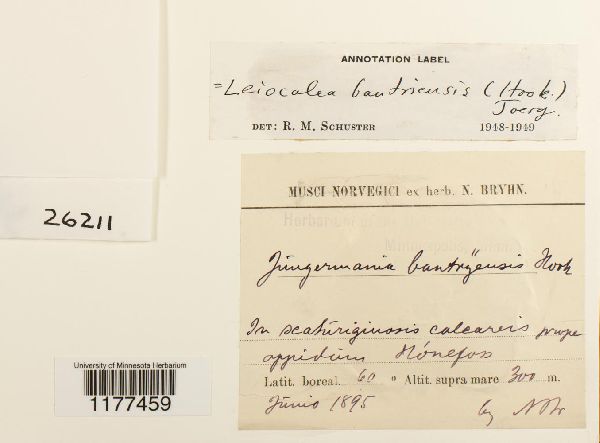 ANNOTATION LABEL
=Leiocolea bantriensis (Hook.)
Joerg.
DET: R. M. SCHUSTER 1948-1949
26211
MUSCI NORVEGICI ex herb. N. BRYHN.
Jungermania bantryensis Hook
In scaturiginosis calcareis prope
oppidum Hönefos
Latit. boreal. 60 ° Altit. supra mare 300 m.
Junio 1895
by NBr
University of Minnesota Herbarium
1177459